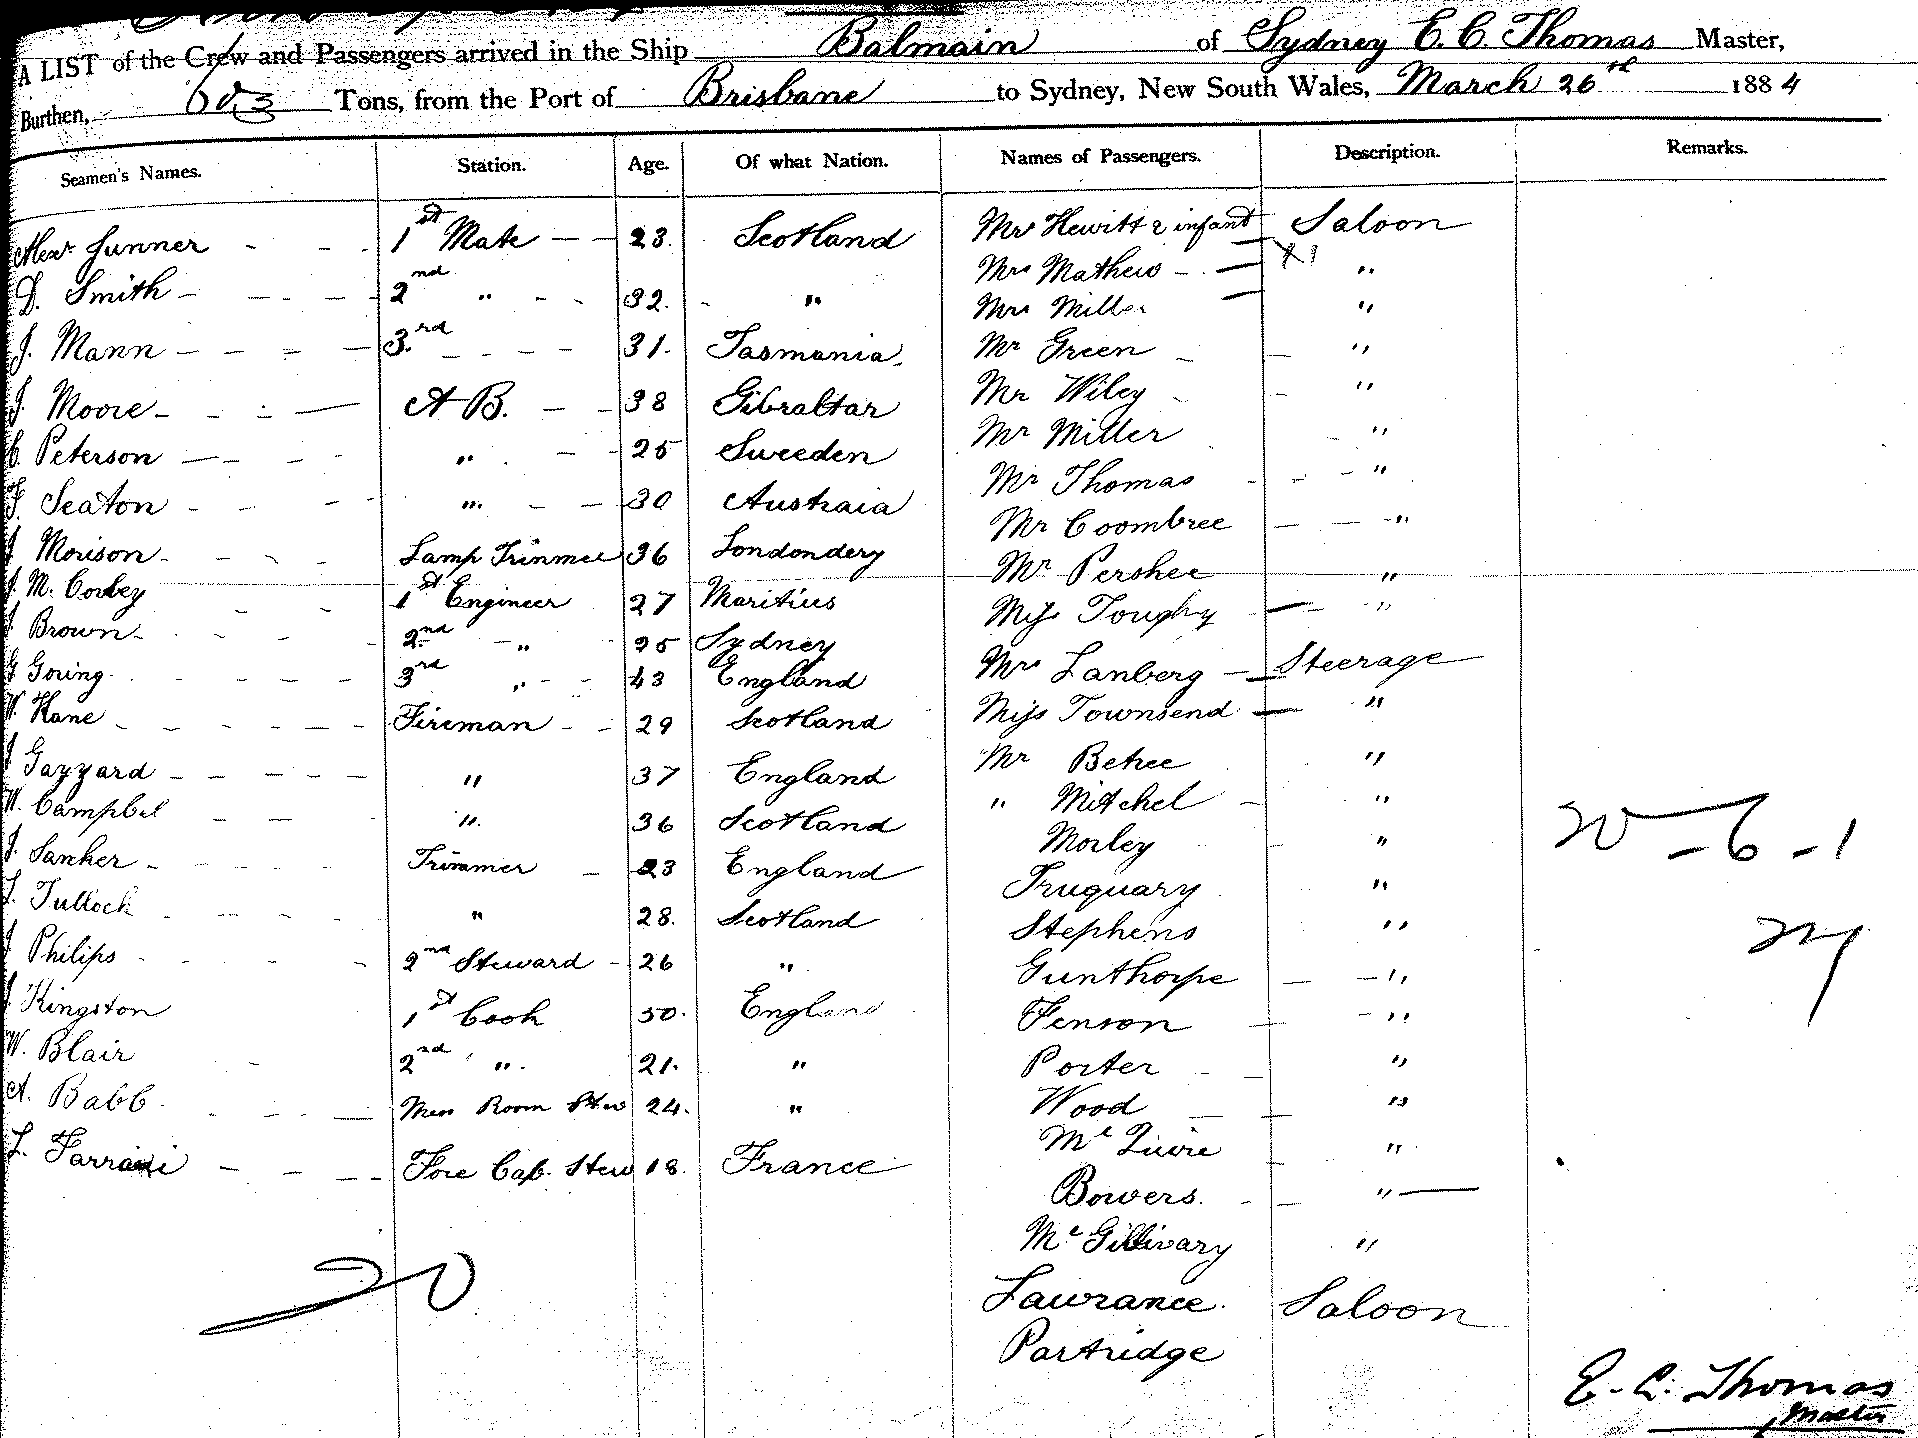 A LIST of the Crew and Passengers arrived in the Ship Balmain of Sydney E. C. Thomas Master,
Burthen, Tons, from the Port of Brisbane to Sydney, New South Wales, March 26th 1884
Seamen's Names. Station. Age. Of what Nation. Names of Passengers. Description. Remarks.
Alexr Gunner - - - 1st Mate - - 23. Scotland Mrs Hewitt & infant Saloon
D. Smith - - - - - 2nd " - - 32. - " Mrs Mathew - - X1 "
J. Mann - - - - - 3.rd - - - - 31. Tasmania Mrs Miller - "
J. Moore - - - - A B. - - 38 Gibraltar Mr Green - - "
C. Peterson - - - - " - - 25 Sweeden Mr Wiley - - "
F. Seaton - - - - " - - 30 Austraia Mr Miller - "
J Morison - - - - Lamp Trimmer 36 Londondery Mr Thomas - - - "
J. M. Corbey - - 1st Engineer 27 Maritius Mr Coombree - - - "
J Brown - - - - 2nd - " 25 Sydney Mr Pershee "
G Goring - - - - 3rd " - - 43 England Miss Toughy - - "
W. Kane - - - - - Fireman - - 29 Scotland Mrs Lanberg - Steerage
J Gazzard - - - - - " 37 England Miss Townsend - "
W. Campbel - - " 36 Scotland Mr Behee "
J. Sanher - - - - Trimmer - 23 England " Mitchel - "
L. Tulloch - - - - " 28. Scotland Morley - "
J Philips - - - - 2nd Steward - 26 " Truquary "
J Kingston 1st Cook 50. England Stephens "
W. Blair - 2nd " 21. " Gunthorpe - - "
A. Babb - - - - Mess Room Stew 24. " Fenson - - "
L. Farrari - - - - - Fore Cab. Stew 18. France Porter - - "
Wood - - "
Mc Quire - "
Bowers. - - "
Mc Gillivary "
Lawrance. Saloon
Partridge
20 - 6 - 1
27
20
E. C. Thomas
Master